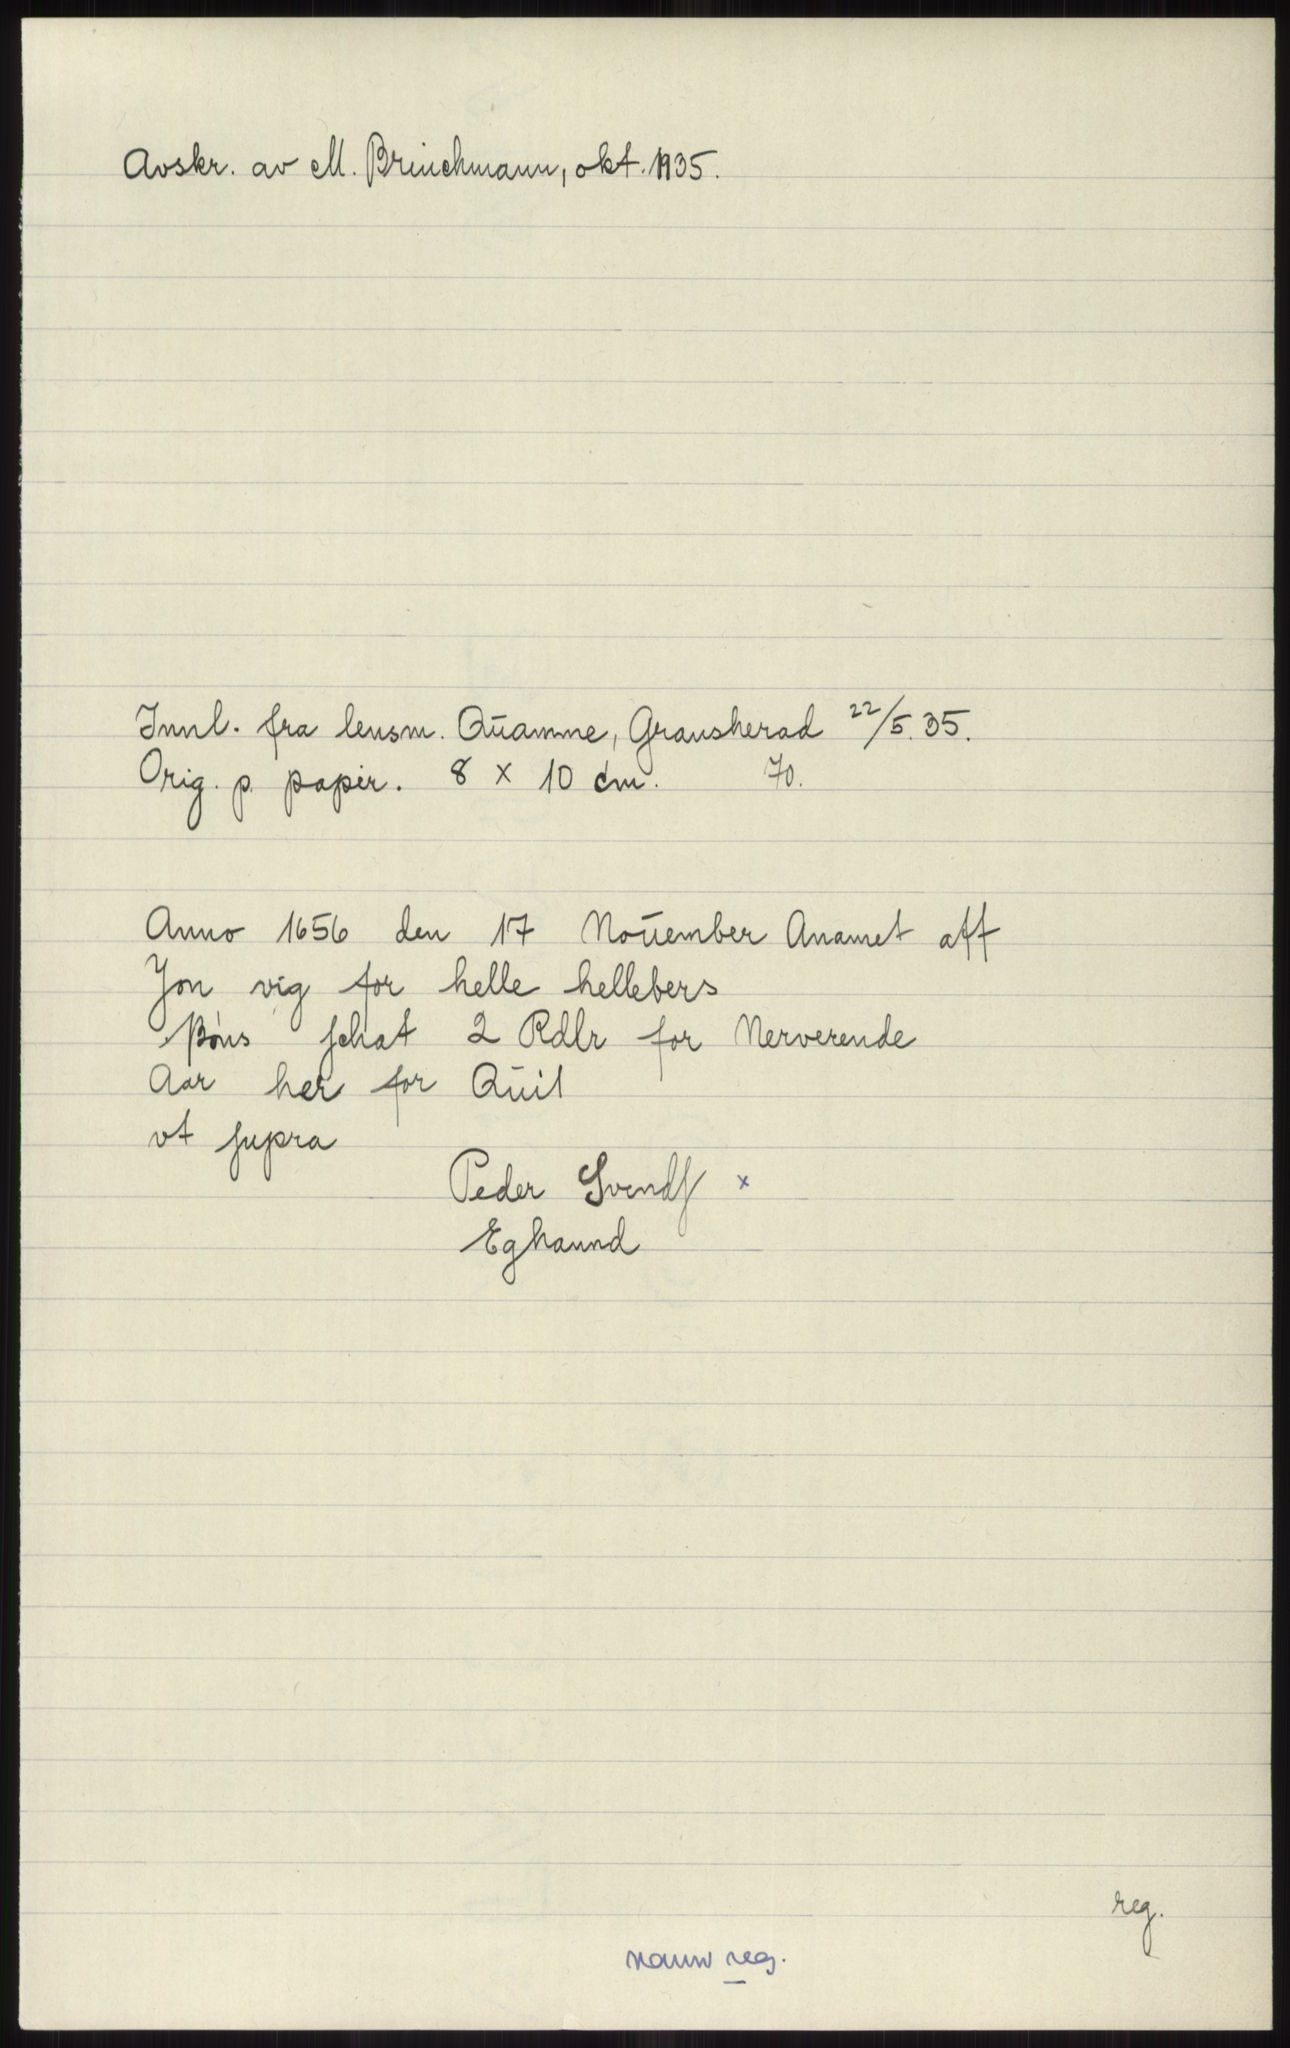 Avskr. av M. Brinchmann, okt. 1935.
Innl. fra lensm. Qŭamme, Gransherad 22/5. 35.
Orig. p. papir. 8 x 10 cm. 70.
Anno 1656 den 17 Noŭember Anamet aff
Jon vig for helle hellebers
schat 2 Rdlr for Nerverende
Aar her for Qŭit
vt supra
Peder Svends x
Eghaund
reg.
navn reg.